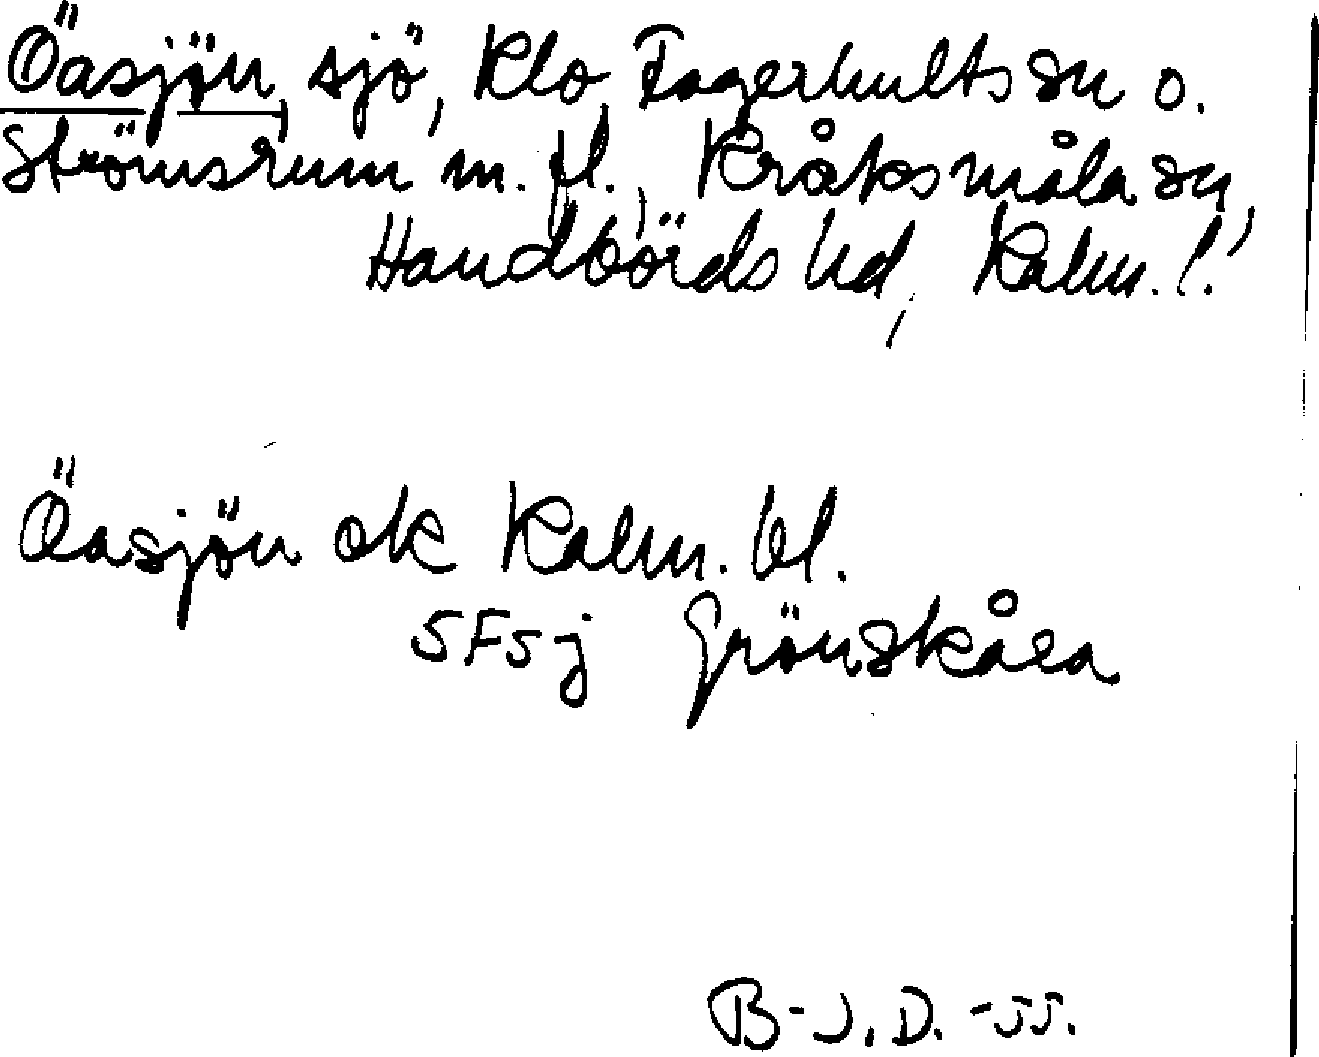 Öasjön, sjö, Klo, Fagerhults sn o.
Strömsrum m. fl., Kråksmåla sn,
Handbörds hd, Kalm. l.
Öasjön ek Kalm. bl.
SFSj Grönskåra
B-J. D. -55.